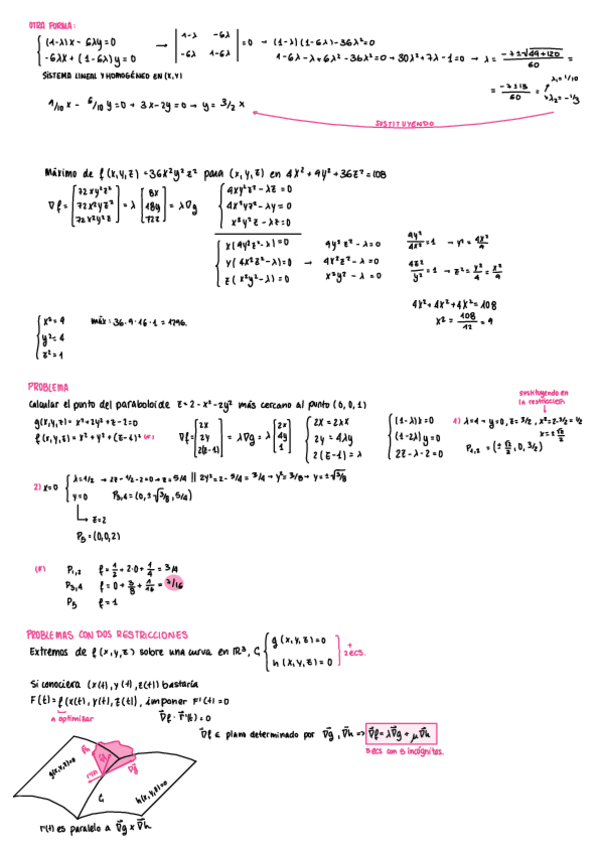 OTRA FORMA:
{ (1-λ)x - 6λy = 0
-6λx + (1-6λ)y = 0
→ | 1-λ -6λ
-6λ 1-6λ | = 0 → (1-λ)(1-6λ)-36λ²=0
1-6λ-λ+6λ²-36λ²=0 → 30λ²+7λ-1=0 → λ = (-7±√(49+120))/60 =
SISTEMA LINEAL Y HOMOGÉNEO EN (X,Y)
= (-7±13)/60 = λ₁=1/10
λ₂=-1/3
9/10 x - 6/10 y = 0 → 3x-2y=0 → y = 3/2 x
SUSTITUYENDO
Máximo de f(x,y,z) = 36x²y²z² para (x,y,z) en 4x²+9y²+36z²=108
∇f = [72xy²z²
72x²yz²
72x²y²z] = λ [8x
18y
72z] = λ∇g
{ 4xy²z²-λz=0
4x²yz²-λy=0
x²y²z-λz=0
{ x(9y²z²-λ)=0
y(4x²z²-λ)=0
z(x²y²-λ)=0
→
9y²z²-λ=0
4x²z²-λ=0
x²y²-λ=0
9y²/4x²=1 → y²=4x²/9
4z²/y²=1 → z²=y²/4=x²/9
4x²+4x²+4x²=108
x²=108/12=9
{ x²=9
y²=4
z²=1
máx: 36·9·16·1=1296.
PROBLEMA
Calcular el punto del paraboloide z=2-x²-2y² más cercano al punto (0,0,1)
sustituyendo en
la restricción
g(x,y,z)=x²+2y²+z-2=0
f(x,y,z)=x²+y²+(z-1)²
∇f=[2x
2y
2(z-1)] = λ∇g = λ[2x
4y
1]
{ 2x=2λx
2y=4λy
2(z-1)=λ
{ (1-λ)x=0
(1-2λ)y=0
2z-λ-2=0
1) λ=1 → y=0, z=3/2, x²=2-3/2=1/2
x=±√2/2
P₁,₂=(±√2/2,0,3/2)
2) x=0 { λ=1/2 → 2z-1/2-2=0 → z=5/4 || 2y²=2-5/4=3/4 → y²=3/8 → y=±√3/8
y=0 P₃,₄=(0,±√3/8,5/4)
↳ z=2
P₅=(0,0,2)
P₁,₂ f=1/2+2·0+1/4=3/4
P₃,₄ f=0+3/8+1/16=7/16
P₅ f=1
PROBLEMAS CON DOS RESTRICCIONES
Extremos de f(x,y,z) sobre una curva en ℝ³, C { g(x,y,z)=0
h(x,y,z)=0 } 2 ecs.
Si conociera (x(t),y(t),z(t)) bastaría
F(t)=f(x(t),y(t),z(t)), imponer F'(t)=0
a optimizar
∇f·r'(t)=0
∇f ∈ plano determinado por ∇g, ∇h ⇒ ∇f=λ∇g+μ∇h
5 ecs con 5 incógnitas.
g(x,y,z)=0
∇h
∇g
C
h(x,y,z)=0
r'(t) es paralelo a ∇g×∇h